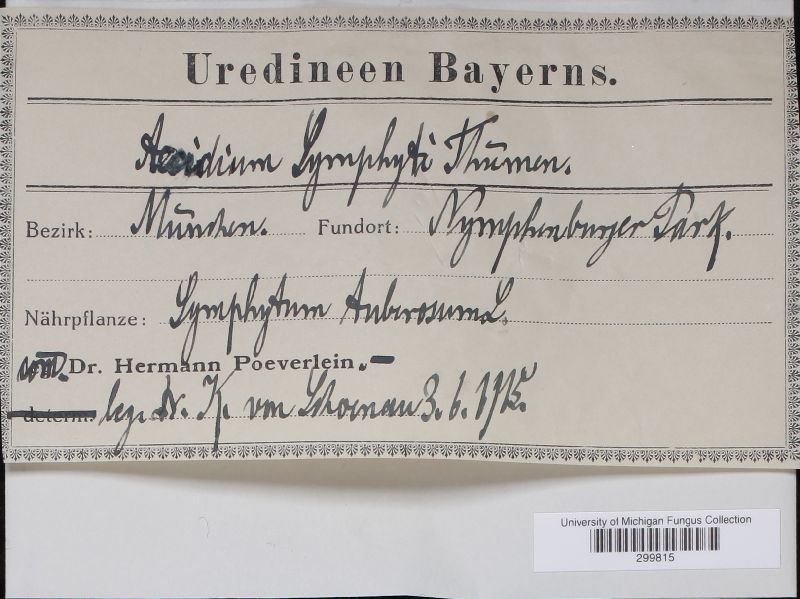 Uredineen Bayerns.
Aecidium Symphyti Thümen.
Bezirk: München. Fundort: Nymphenburger Park.
Nährpflanze: Symphytum tuberosum L.
Dr. Hermann Poeverlein. –
determ. leg. Dr. K. von Schoenau 3. 6. 1915.
University of Michigan Fungus Collection
299815